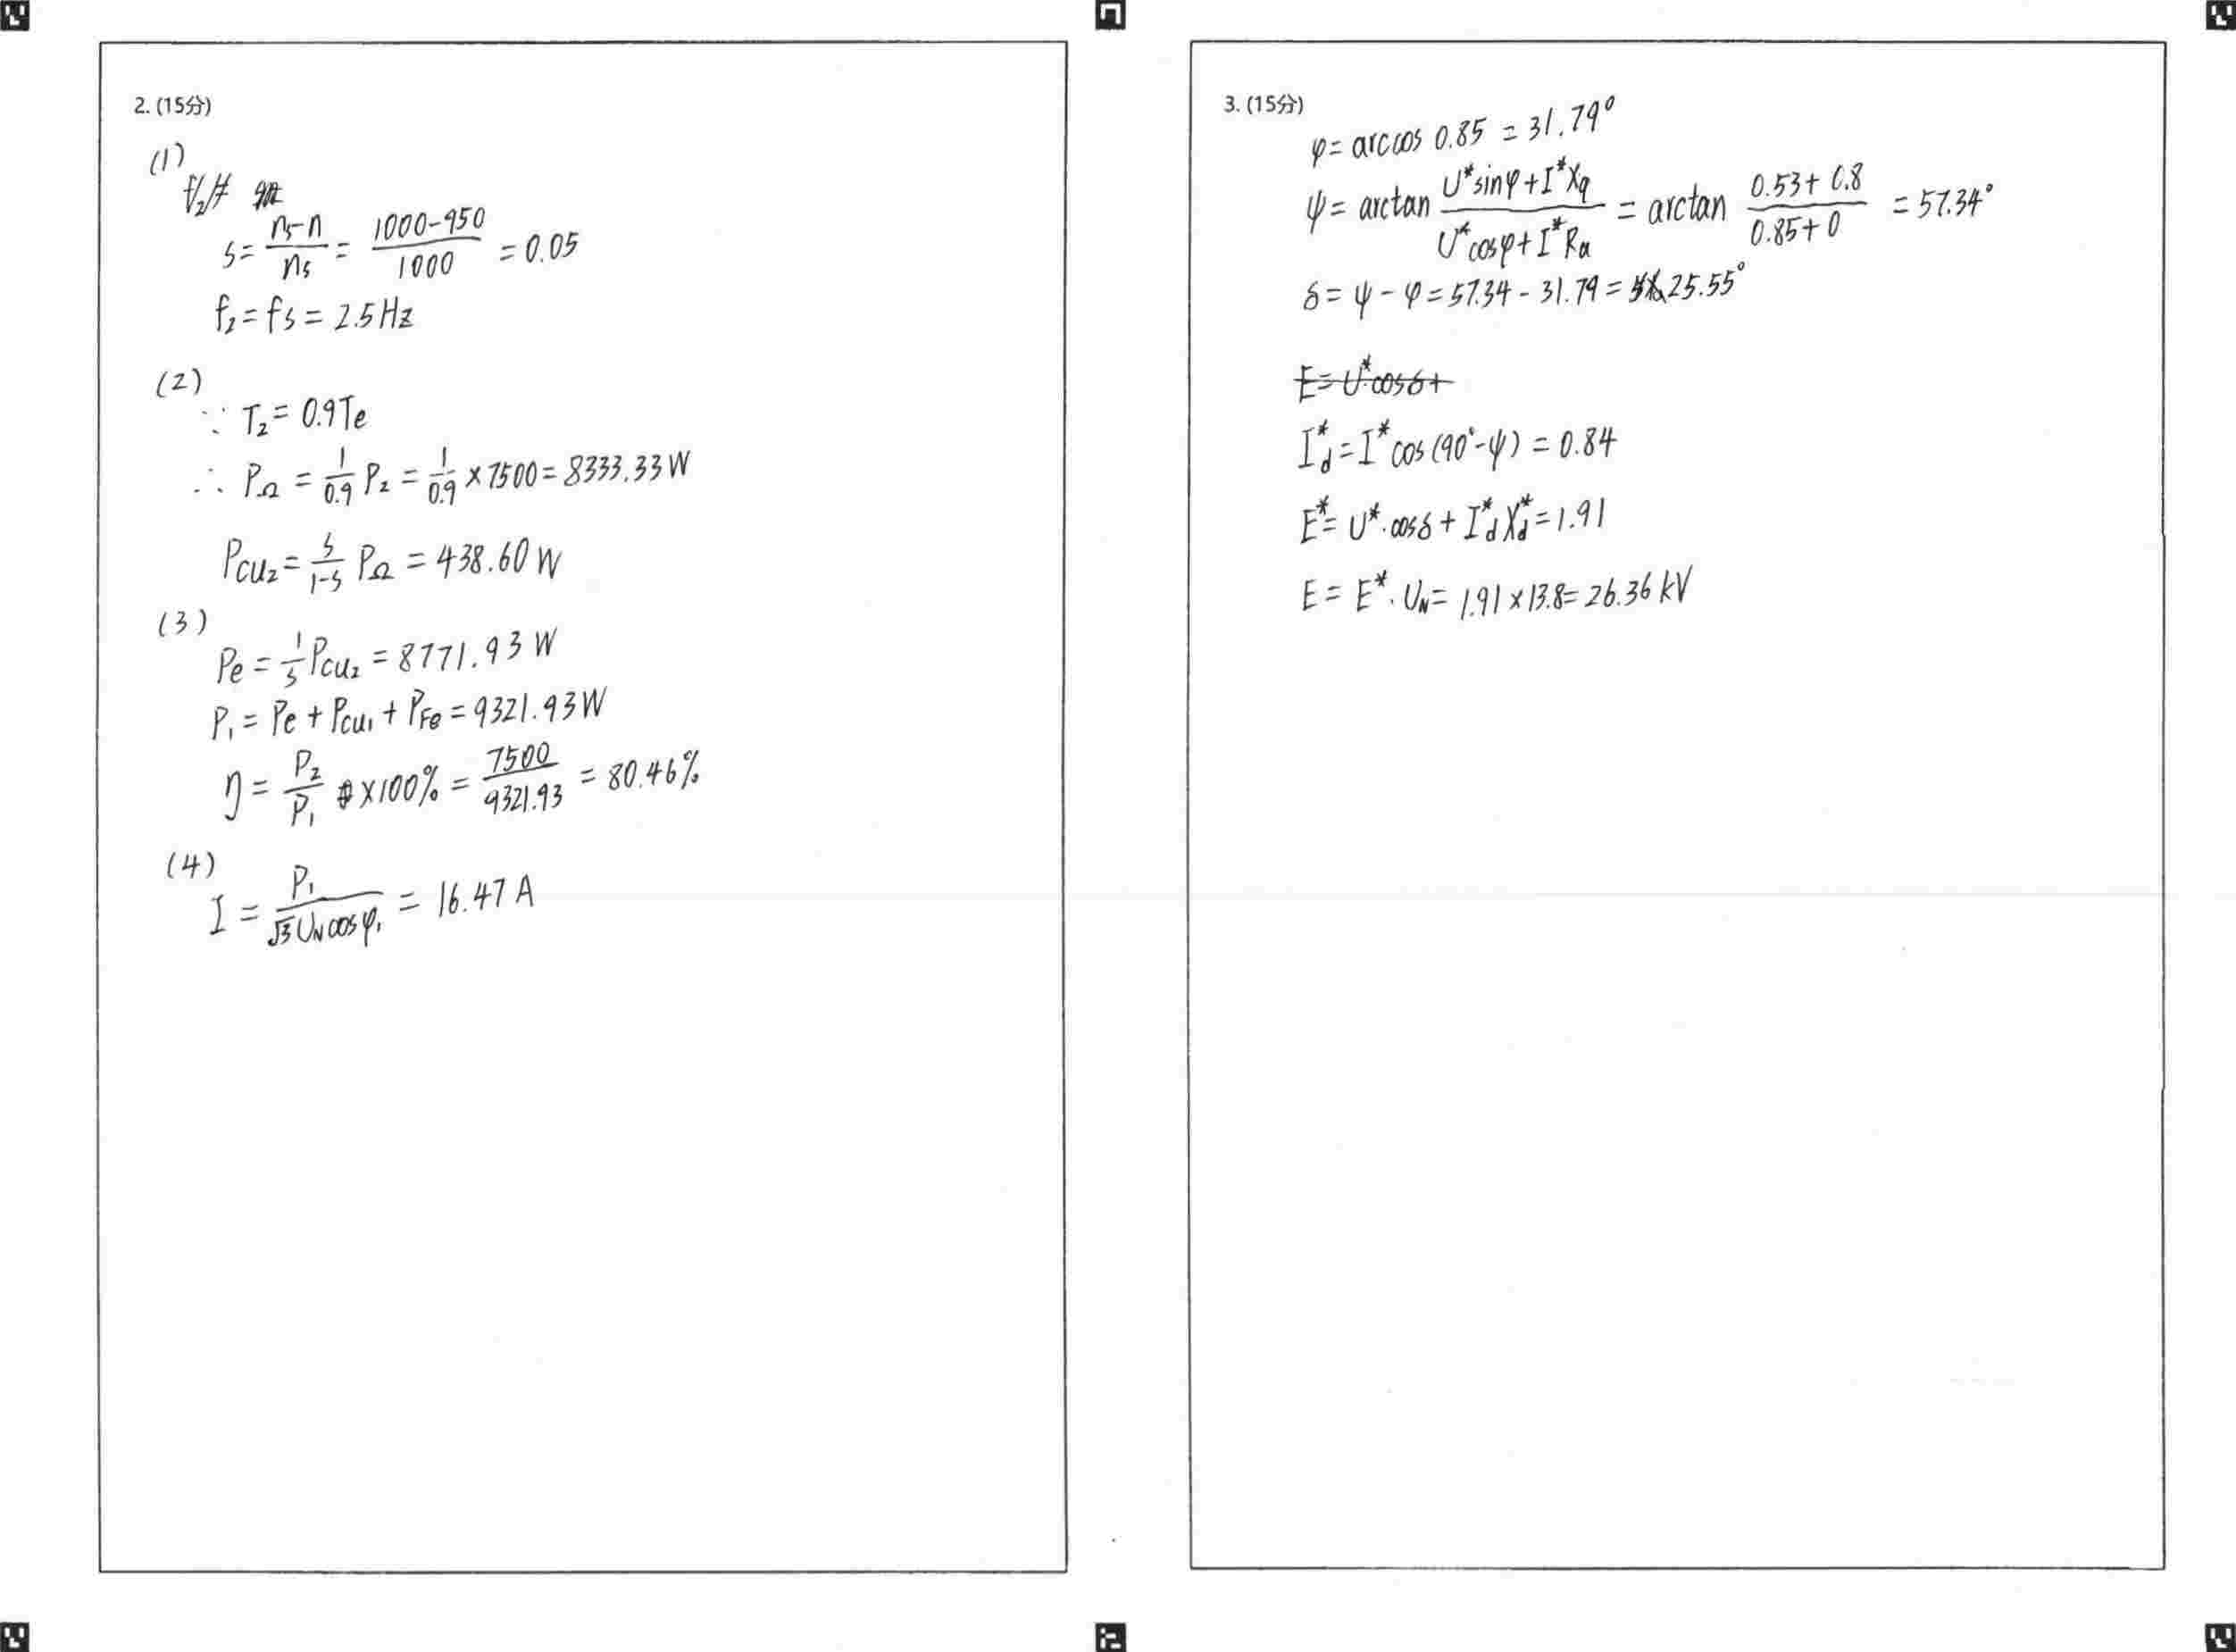 2. (15分)
(1)
s = (ns-n)/ns = (1000-950)/1000 = 0.05
f₂ = fs = 2.5Hz
(2)
∵ T₂ = 0.9Te
∴ PΩ = 1/0.9 P₂ = 1/0.9 × 7500 = 8333.33W
Pcu₂ = s/(1-s) PΩ = 438.60 W
(3)
Pe = 1/s Pcu₂ = 8771.93 W
P₁ = Pe + Pcu₁ + PFe = 9321.93W
η = P₂/P₁ ×100% = 7500/9321.93 = 80.46%
(4)
I = P₁/(√3 UN cosφ₁) = 16.47 A
3. (15分)
φ = arccos 0.85 = 31.79°
ψ = arctan (U*sinφ+I*Xq)/(U*cosφ+I*Ra) = arctan (0.53+0.8)/(0.85+0) = 57.34°
δ = ψ - φ = 57.34 - 31.79 = 25.55°
E = U*cosδ+
I*d = I*cos(90°-ψ) = 0.84
E* = U*·cosδ + I*d X*d = 1.91
E = E*·UN = 1.91×13.8 = 26.36 kV